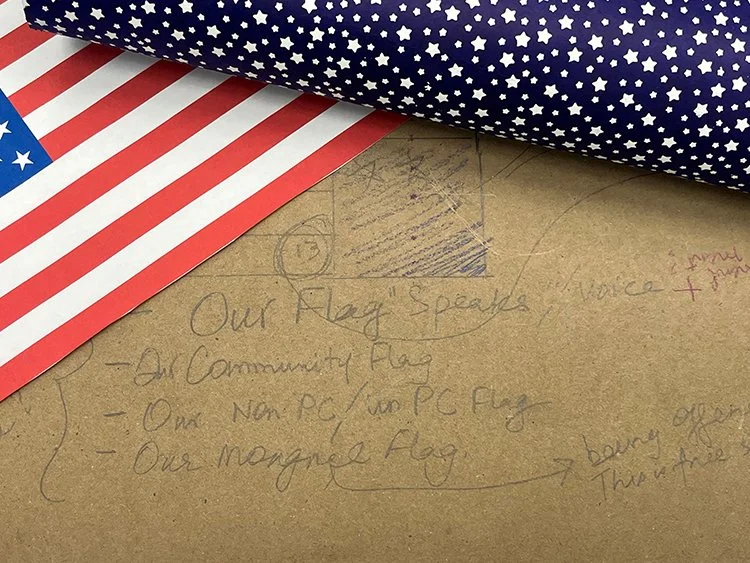 13
- Our Flag" Speaks, voice
- Our Community Flag
- Our Non PC/un PC Flag
- Our Mongrel Flag.
being offen
This is free s